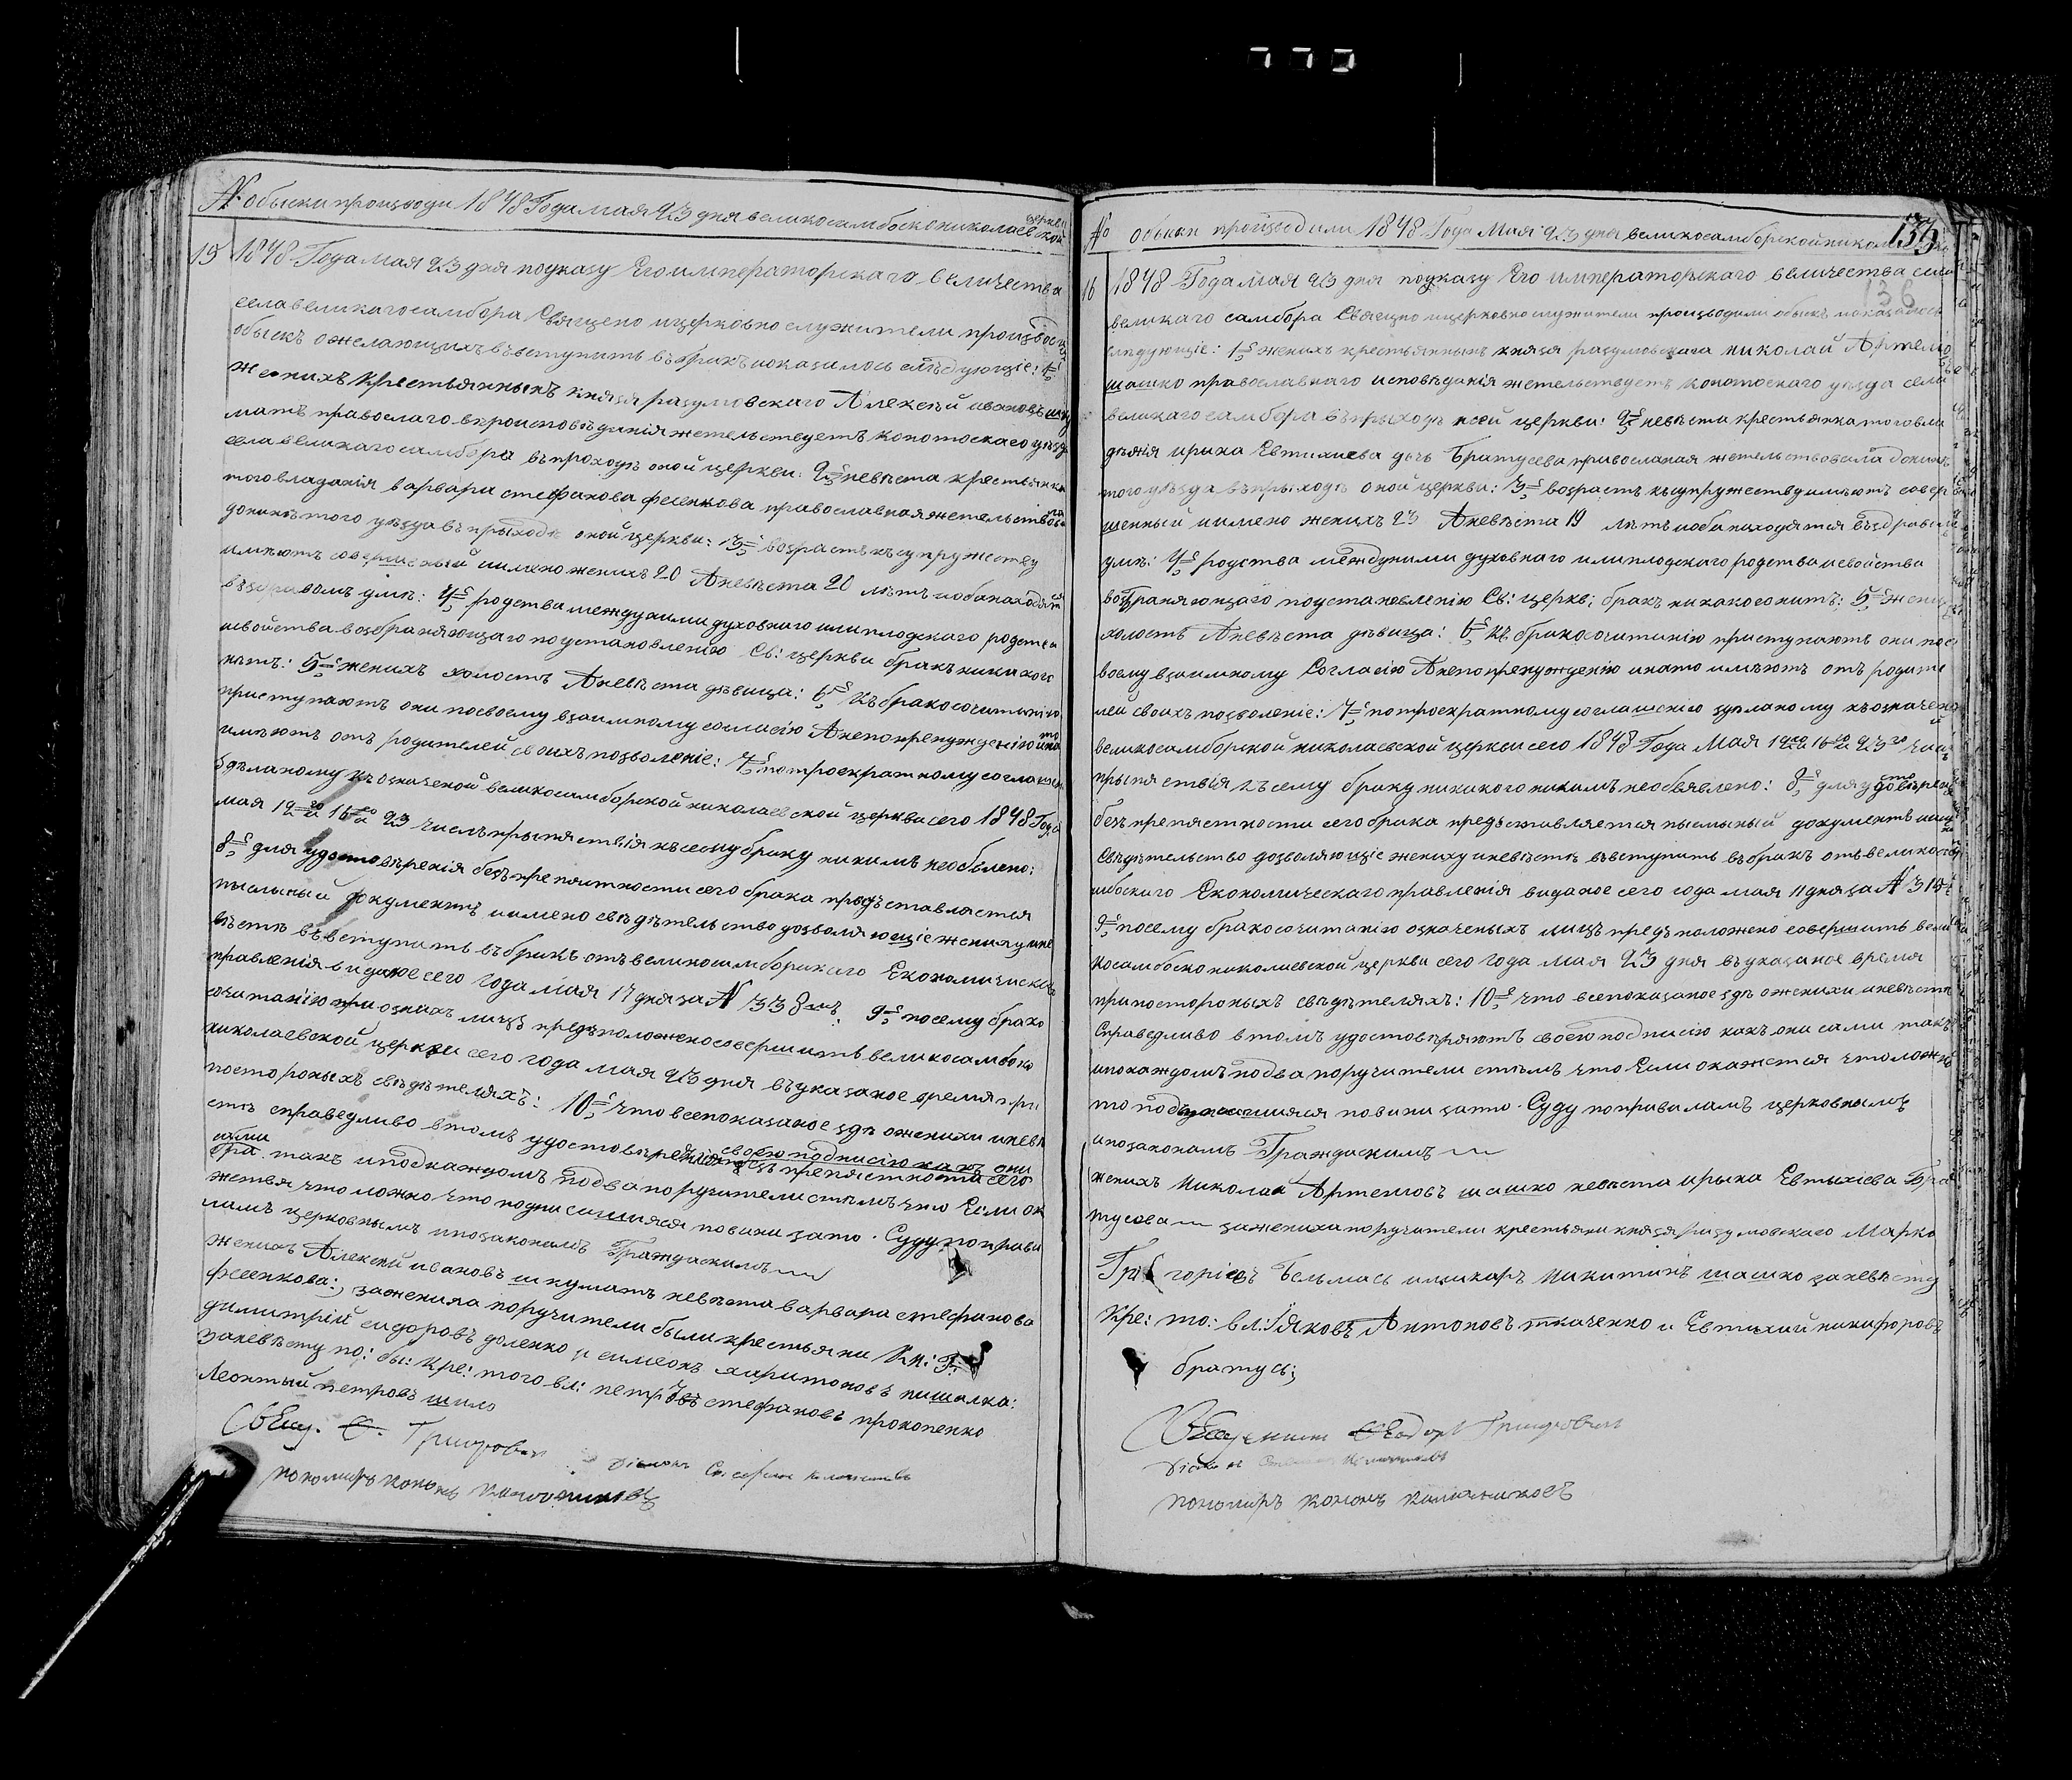 № обыски произзоди 1848 Года мая 23 дня великосамбоско николаевской церкви
15 1848 Года мая 23 дня поуказу Его императорскаго величества
села великаго самбора Священо ицерковно служители произзводи
обыск ожелающихъ въвступить въбракъ показалось следующіе: 1е
женихъ крестьянинъ князя разумовскаго Алексѣй ивановъ шку
матъ правослаго вероисповѣданія жетельствуетъ конотоскаго уѣзда
села великаго самбора въ проходѣ оной церкви: 2е невѣста крестьянка
того владанія варвара стефанова фесенкова православная жетельствовала
донинѣ того уѣзда въ прыходѣ оной церкви: 3е возрастъ къ супружеству
имѣютъ совершеный имено женихъ 20 Аневѣста 20 лѣтъ иоба находятся
въздравомъ умѣ: 4е родства между ими духовнаго или плодскаго родства
исвойства возбраняющаго поустановленію Св: церкви бракъ никакого
нѣтъ: 5е женихъ холостъ Аневѣста дѣвица: 6е къ бракосочитанію
приступаютъ они посвоему взаимному согласію Анепопренужденію инато
имѣютъ отъ родителей своихъ позволеніе: 7е по троекратному соглашенію
здѣланому въ означеной великосамборской николаевской церкви сего 1848 Года
мая 12го 16го 23 числъ прыпятствія къ сему браку никимъ необвлено:
8е для удостовѣренія безъпрепятности сего брака предъставляется
письмный документъ имено свѣдѣтельство дозволяющіе жениху ине
вѣстѣ въвступить въбракъ отъ великосамборскаго Економическаго
правленія виданое сего года мая 17 дня за № 338мъ. 9е посему брако
сочитанію при ознихъ лицъ предположено совершить великосамбоско
николаевской церкви сего года мая 23 дня въ указаное время при
посторонихъ свѣдѣтеляхъ: 10е что всепоказаное здѣ оженихи иневѣ
стѣ справедливо втомъ удостовѣре своею подписію какъ они
сами такъ иподкаждомъ подва поручители стѣмъ что Если ок
жетья что ложно что подписашияся повини зато. Суду поправи
ламъ церковнымъ ипозаконамъ Граждаскимъ
женихъ Алексѣй ивановъ шкуматъ невѣста варвара стефанова
фесенкова:, заженила поручители были крестьяни Кн: Р:
димитрій сидоровъ доленко и симеонъ харитоновъ пишалка:
Заневѣсту по: бы: Кре: того вл: петръ стефановъ прокопенко
Леонтый петровъ шило
Свящ. Ѳ. Григрович
діаконъ
пономаръ кононъ
№ обыски произзводили 1848 Года Мая 23 дня великосамборской никол
133
136
16 1848 Года мая 23 дня поуказу Его императорскаго величества села
великаго самбора Священо ицерковно служители произзводили обыскъ показалось
следующіе: 1е женихъ крестьянинъ князя разумовскаго николай Артемо
шашко православнаго исповѣданія жетельствуетъ конотоскаго уѣзда села
великаго самбора въ прыходѣ псей церкви: 2е невѣста крестьянка тоговла
дѣнія ирина Евтихиева дочь Братусева православная жетельствовала донинѣ
того уѣзда въ прыходѣ оной церкви: 3е возрастъ къ супружеству имѣютъ совер
шенный имено женихъ 23 Аневѣста 19 лѣтъ иоба находятся въздравом
умѣ: 4е родства междуними духовнаго или плодскаго родства исвойства
возбраняющаго поустановленію Св: церкви бракъ никакого нѣтъ: 5е жених
холостъ Аневѣста дѣвица: 6е къ бракосочитанію приступаютъ они пос
воему взаимному Согласію Анепопренужденію инато имѣютъ отъ родите
лей своихъ позволеніе: 7е потроекратному соглашенію здѣланому въ означеной
великосамборской николаевской церкви сего 1848 Года Мая 12го 16го 23го числ
прыпятствія къ сему браку никакого никимъ необявлено: 8е для удостовѣрен
безъпрепятности сего брака предъставляется письмный документъ имено
свѣдѣтельство дозволяющіе жениху иневѣстѣ въвступить въбракъ отъ великоса
мбоскаго Економическаго правленія виданое сего года мая 11 дня за №
9е посему бракосочитанію означеныхъ лицъ предъположено совершить вели
косамбоско николаевской церкви сего года мая 23 дня въ указаное время
припостороныхъ свѣдѣтеляхъ: 10е что всепоказаное здѣ оженихи иневѣстѣ
Справедливо втомъ удостовѣряютъ своею подписію какъ они сами такъ
ипокаждомъ подва поручители стѣмъ что Если окажется что ложно
то подписашияся повини зато. Суду поправиламъ церковнымъ
ипозаконамъ Граждаскимъ
женихъ Николай Артемовъ шашко невѣста ирина Евтыхіева Бра
тусова зажениха поручители крестьяни князя разумовскаго Марко
Григоріевъ Бельмась имикаръ Никитинъ шашко заневѣсту
Кре: то: вл: Іяковъ Антоновъ ткаченко и Евтихий никифоровъ
братусь;
Священникъ Ѳеодоръ Григровичъ
діаконъ
пономаръ кононъ калашниковъ